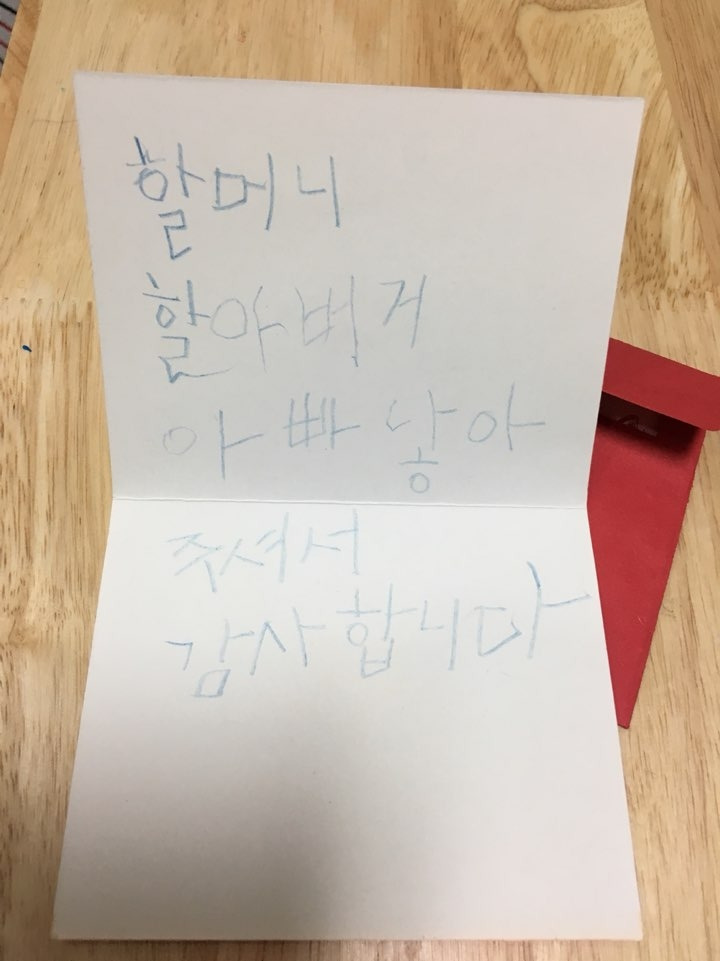 할머니
할아버거
아빠낳아
주셔서
감사합니다